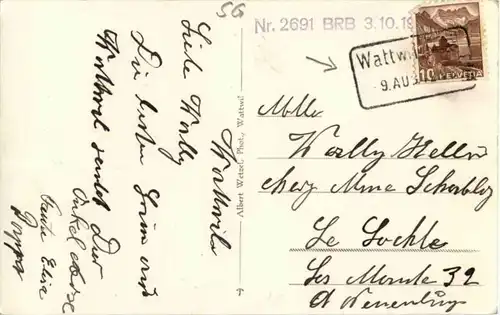 SG
Nr. 2691 BRB 3.10.19
Wattwil
9.AU
10 HELVETIA
Wattwil
Liebe Wally
Die besten Grüsse aus
Wattwil sendet Dir
Onkel
Tante Elise
Albert Wetzel, Phot., Wattwil
Mlle
Wally
chez Mme
Le Locle
Les Monts 32
Ct Neuenburg